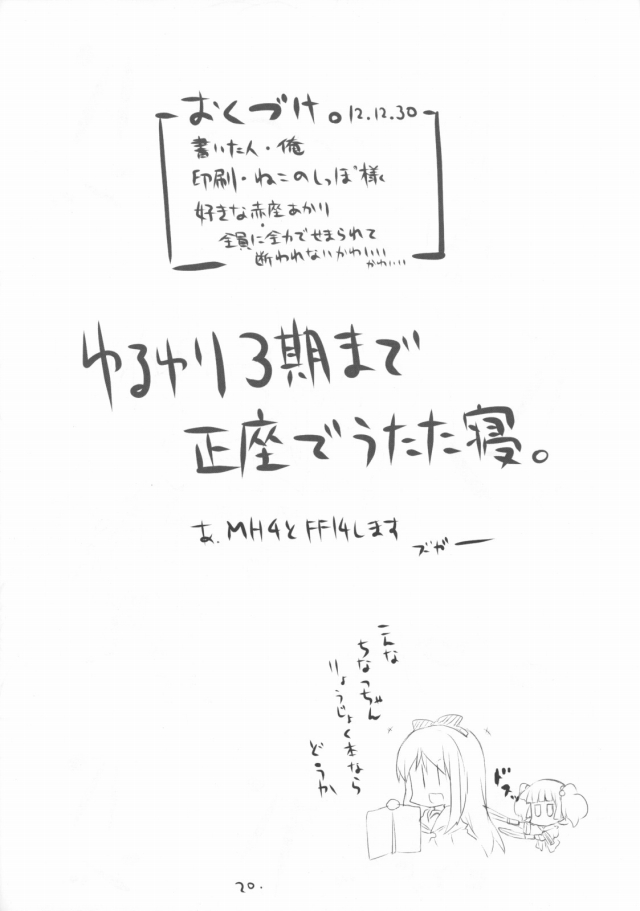 おくづけ。12.12.30
書いた人・俺
印刷・ねこのしっぽ様
好きな赤座あかり
・
全員に全力でせまられて
断われないかわいい
かわいい
ゆるゆり3期まで
正座でうたた寝。
あ、MH4とFF14します
ズガー
こんな
ちなっちゃん
りょうじょく本なら
どうか
ドスッ
20.